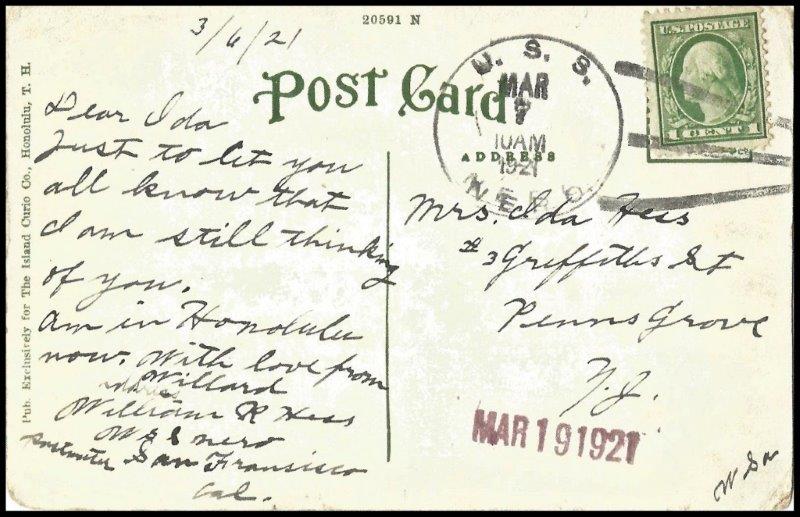 20591 N
3/6/21
Post Card
ADDRESS
U. S. S.
MAR
7
10AM
1921
NERO
U.S. POSTAGE
1 CENT 1
Pub. Exclusively for The Island Curio Co., Honolulu, T. H.
Dear Ida
Just to let you
all know that
I am still thinking
of you.
am in Honolulu
now. With love from
Willard
William R Hess
nero
San Fransisco
Cal.
Mrs. Ida Hess
3 Griffiths St
Penns Grove
N.J.
MAR 19 1921